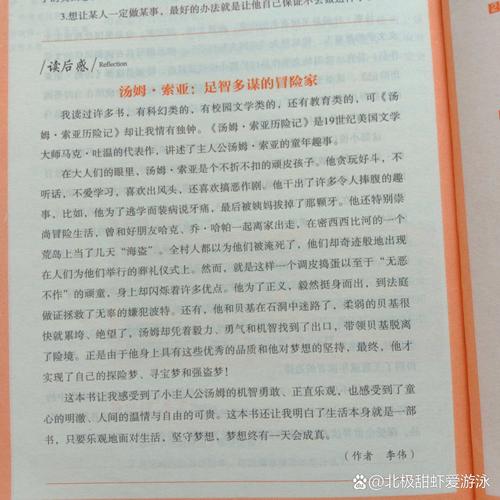 3.想让某人一定做某事，最好的办法就是让他自己保证不会做这件事
读后感
Reflection
汤姆·索亚：足智多谋的冒险家
我读过许多书，有科幻类的，有校园文学类的，还有教育类的，可《汤
姆·索亚历险记》却让我情有独钟。《汤姆·索亚历险记》是19世纪美国文学
大师马克·吐温的代表作，讲述了主人公汤姆·索亚的童年趣事。
在大人们的眼里，汤姆·索亚是个不折不扣的顽皮孩子。他贪玩好斗，不
听话，不爱学习，喜欢出风头，还喜欢搞恶作剧。他干出了许多令人捧腹的趣
事，比如，他为了逃学而装病说牙痛，最后被姨妈拔掉了那颗牙。他还特别崇
尚冒险生活，曾和好朋友哈克、乔·哈帕一起离家出走，在密西西比河的一个
荒岛上当了几天“海盗”。全村人都以为他们被淹死了，他们却奇迹般地出现
在人们为他们举行的葬礼仪式上。然而，就是这样一个调皮捣蛋以至于“无恶
不作”的顽童，身上却闪烁着许多优点。他为了正义，毅然挺身而出，到法庭
做证拯救了无辜的嫌犯波特。还有，他和贝基在石洞中迷路了，柔弱的贝基很
快就累垮、绝望了，汤姆却凭着毅力、勇气和机智找到了出口，带领贝基脱离
了险境。正是由于他身上具有这些优秀的品质和他对梦想的坚持，最终，他才
实现了自己的探险梦、寻宝梦和强盗梦！
这本书让我感受到了小主人公汤姆的机智勇敢、正直乐观，也感受到了童
心的明澈、人间的温情与自由的可贵。这本书还让我明白了生活本身就是一部
书，只要乐观地面对生活，坚守梦想，梦想终有一天会成真。
（作者 李伟）
@北极甜虾爱游泳